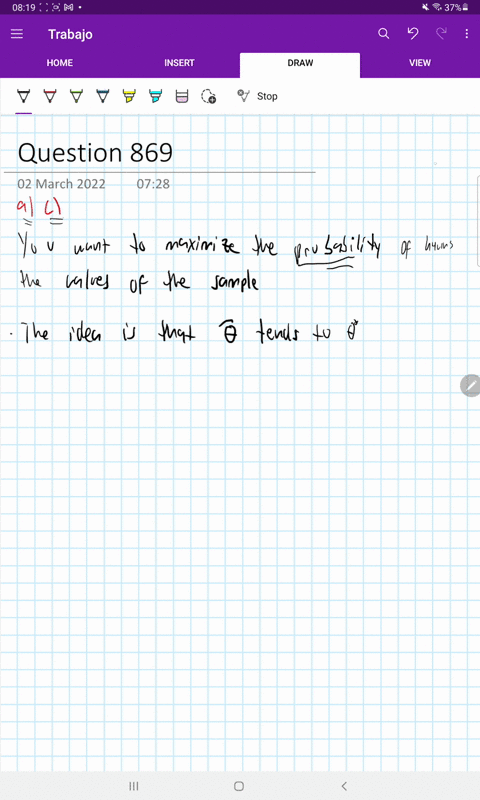 08:19 37%
Trabajo
HOME INSERT DRAW VIEW
Stop
Question 869
02 March 2022 07:28
a) c)
You want to maximize the probability of
the values of the sample
. The idea is that θ̂ tends to θ*